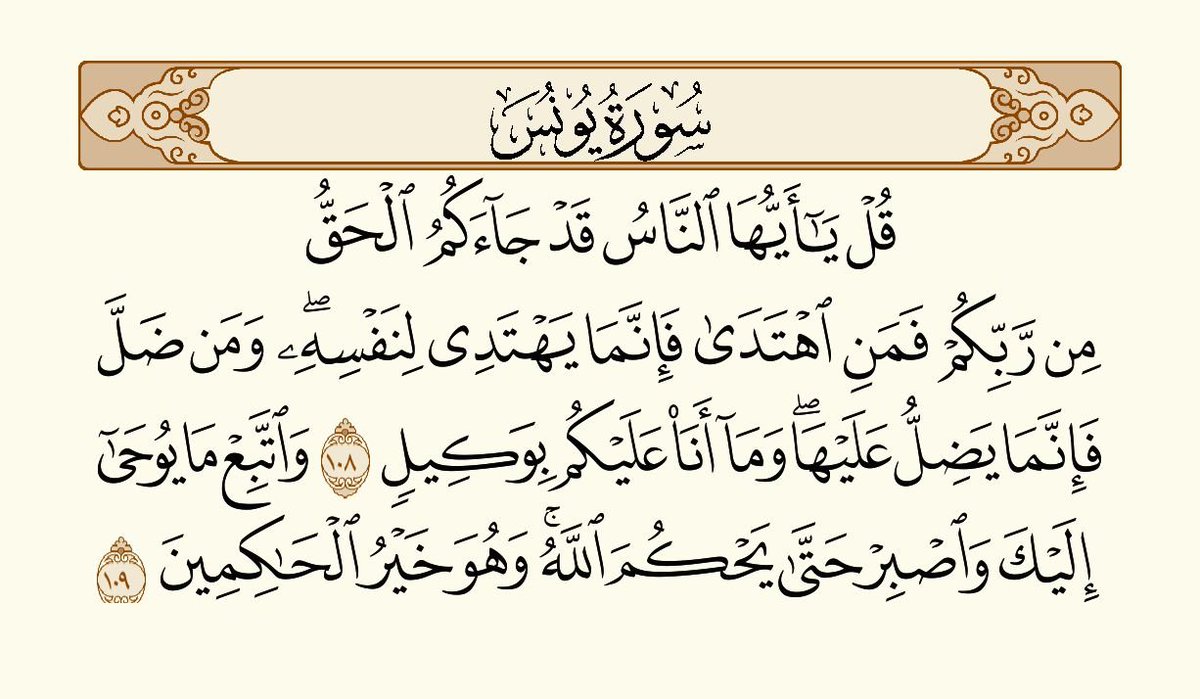 سُورَةُ يُونُسَ
قُلۡ يَـٰٓأَيُّهَا ٱلنَّاسُ قَدۡ جَآءَكُمُ ٱلۡحَقُّ
مِن رَّبِّكُمۡ فَمَنِ ٱهۡتَدَىٰ فَإِنَّمَا يَهۡتَدِى لِنَفۡسِهِۦۖ وَمَن ضَلَّ
فَإِنَّمَا يَضِلُّ عَلَيۡهَاۖ وَمَآ أَنَا۠ عَلَيۡكُم بِوَكِيلٍ ١٠٨ وَٱتَّبِعۡ مَا يُوحَىٰٓ
إِلَيۡكَ وَٱصۡبِرۡ حَتَّىٰ يَحۡكُمَ ٱللَّهُۚ وَهُوَ خَيۡرُ ٱلۡحَـٰكِمِينَ ١٠٩